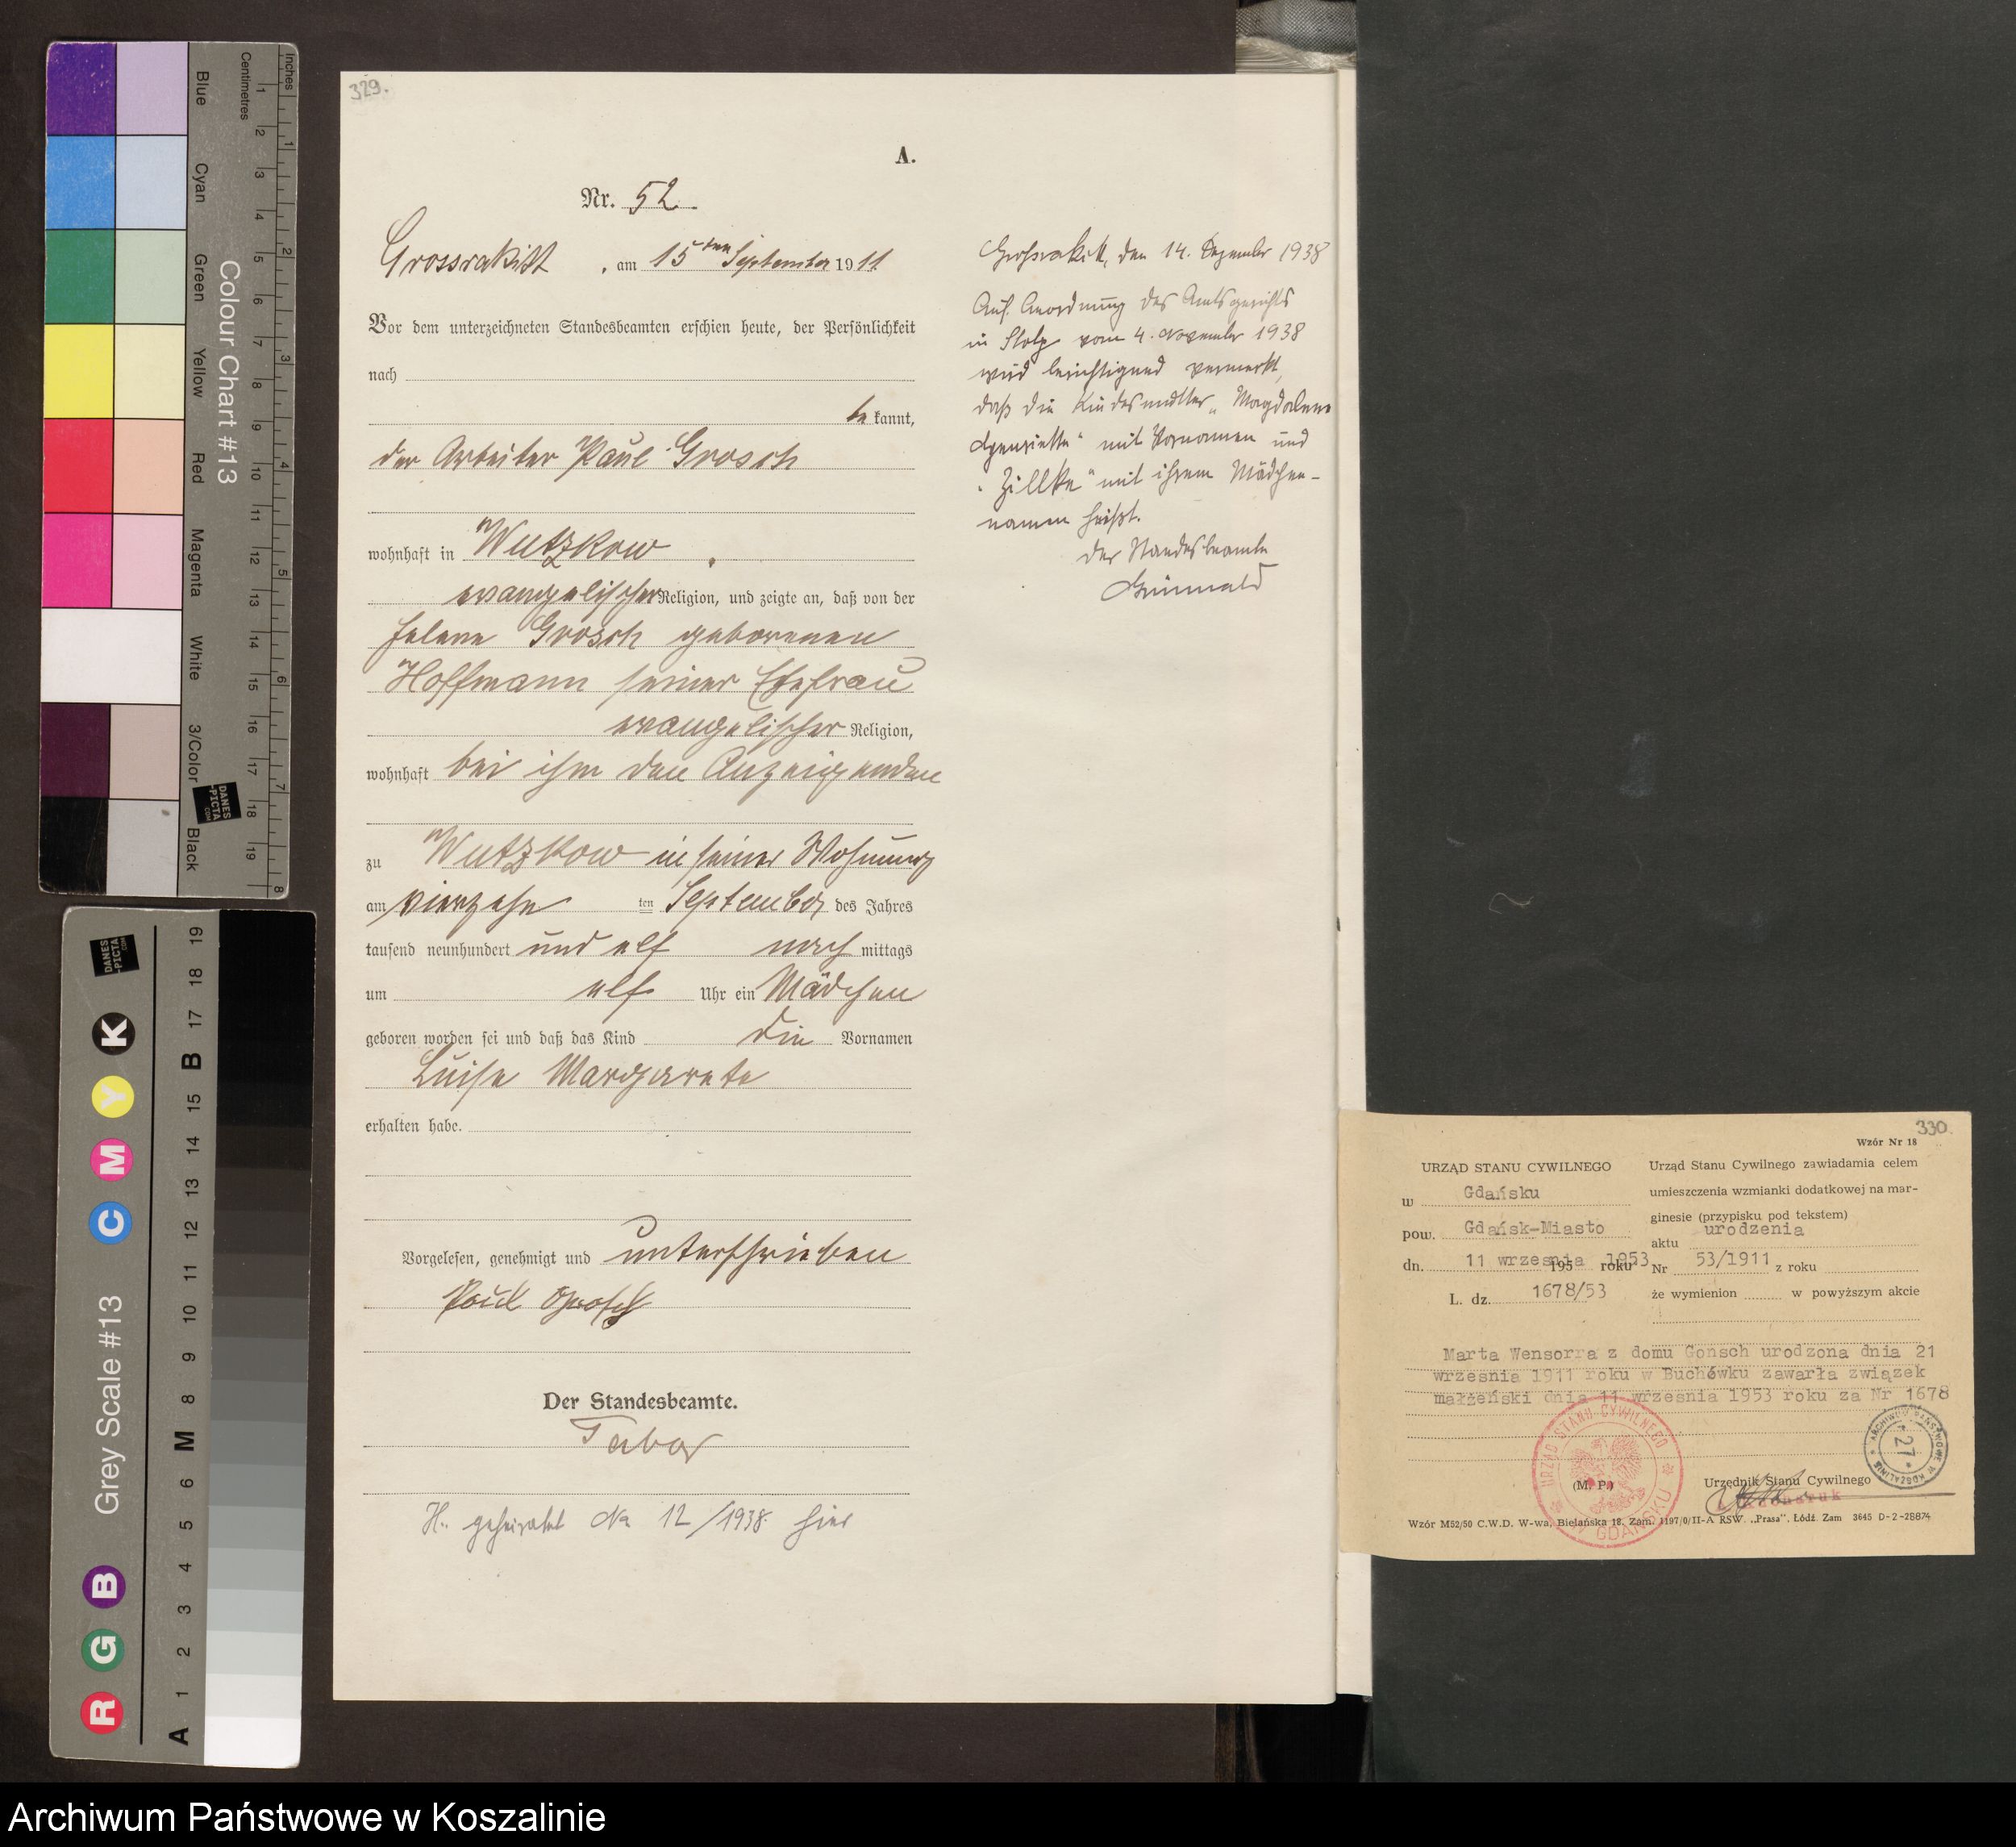 329.
A.
Nr. 52.
Grossrakitt, am 15ten September 1911
Vor dem unterzeichneten Standesbeamten erschien heute, der Persönlichkeit
nach
be kannt,
der Arbeiter Paul Grosch
wohnhaft in Wutzkow,
evangelischer Religion, und zeigte an, daß von der
Helene Grosch geborenen
Hoffmann seiner Ehefrau
evangelischer Religion,
wohnhaft bei ihm den Anzeigenden
zu Wutzkow in seiner Wohnung
am vierzehn ten September des Jahres
tausend neunhundert und elf nach mittags
um elf Uhr ein Mädchen
geboren worden sei und daß das Kind die Vornamen
Luise Margarete
erhalten habe.
Vorgelesen, genehmigt und unterschrieben
Paul Grosch
Der Standesbeamte.
H. geheiratet No 12/1938 hier
Großrakitt, den 14. Dezember 1938
Auf Anordnung des Amtsgerichts
in Stolp vom 4. November 1938
wird berichtigend vermerkt,
daß die Kindesmutter „Magdalene
Henriette“ mit Vornamen und
„Zillke“ mit ihrem Mädchen-
namen heißt.
Der Standesbeamte
Grünwald
330
Wzór Nr 18
URZĄD STANU CYWILNEGO
w Gdańsku
pow. Gdańsk-Miasto
dn. 11 września 195 roku 1953
L. dz. 1678/53
Urząd Stanu Cywilnego zawiadamia celem
umieszczenia wzmianki dodatkowej na mar-
ginesie (przypisku pod tekstem)
aktu urodzenia
Nr 53/1911 z roku
że wymienion w powyższym akcie
Marta Wensorra z domu Gonsch urodzona dnia 21
września 1911 roku w Buchówku zawarła związek
małżeński dnia 11 września 1953 roku za Nr 1678
URZĄD STANU CYWILNEGO W GDAŃSKU
(M. P.)
ARCHIWUM PAŃSTWOWE W KOSZALINIE
27
Urzędnik Stanu Cywilnego
Wzór M52/50 C.W.D. W-wa, Bielańska 18. Zam. 1197/0/II-A RSW. „Prasa”. Łódź. Zam 3645 D-2-28874
Inches
Centimetres
Colour Chart #13
Blue
Cyan
Green
Yellow
Red
Magenta
White
3/Color
Black
DANES
-PICTA
.COM
1 2 3 4 5 6 7 8 9 10 11 12 13 14 15 16 17 18 19
1 2 3 4 5 6 7 8
Grey Scale #13
R G B C M Y K
DANES
-PICTA
.COM
A 1 2 3 4 5 6 M 8 9 10 11 12 13 14 15 B 17 18 19
Archiwum Państwowe w Koszalinie